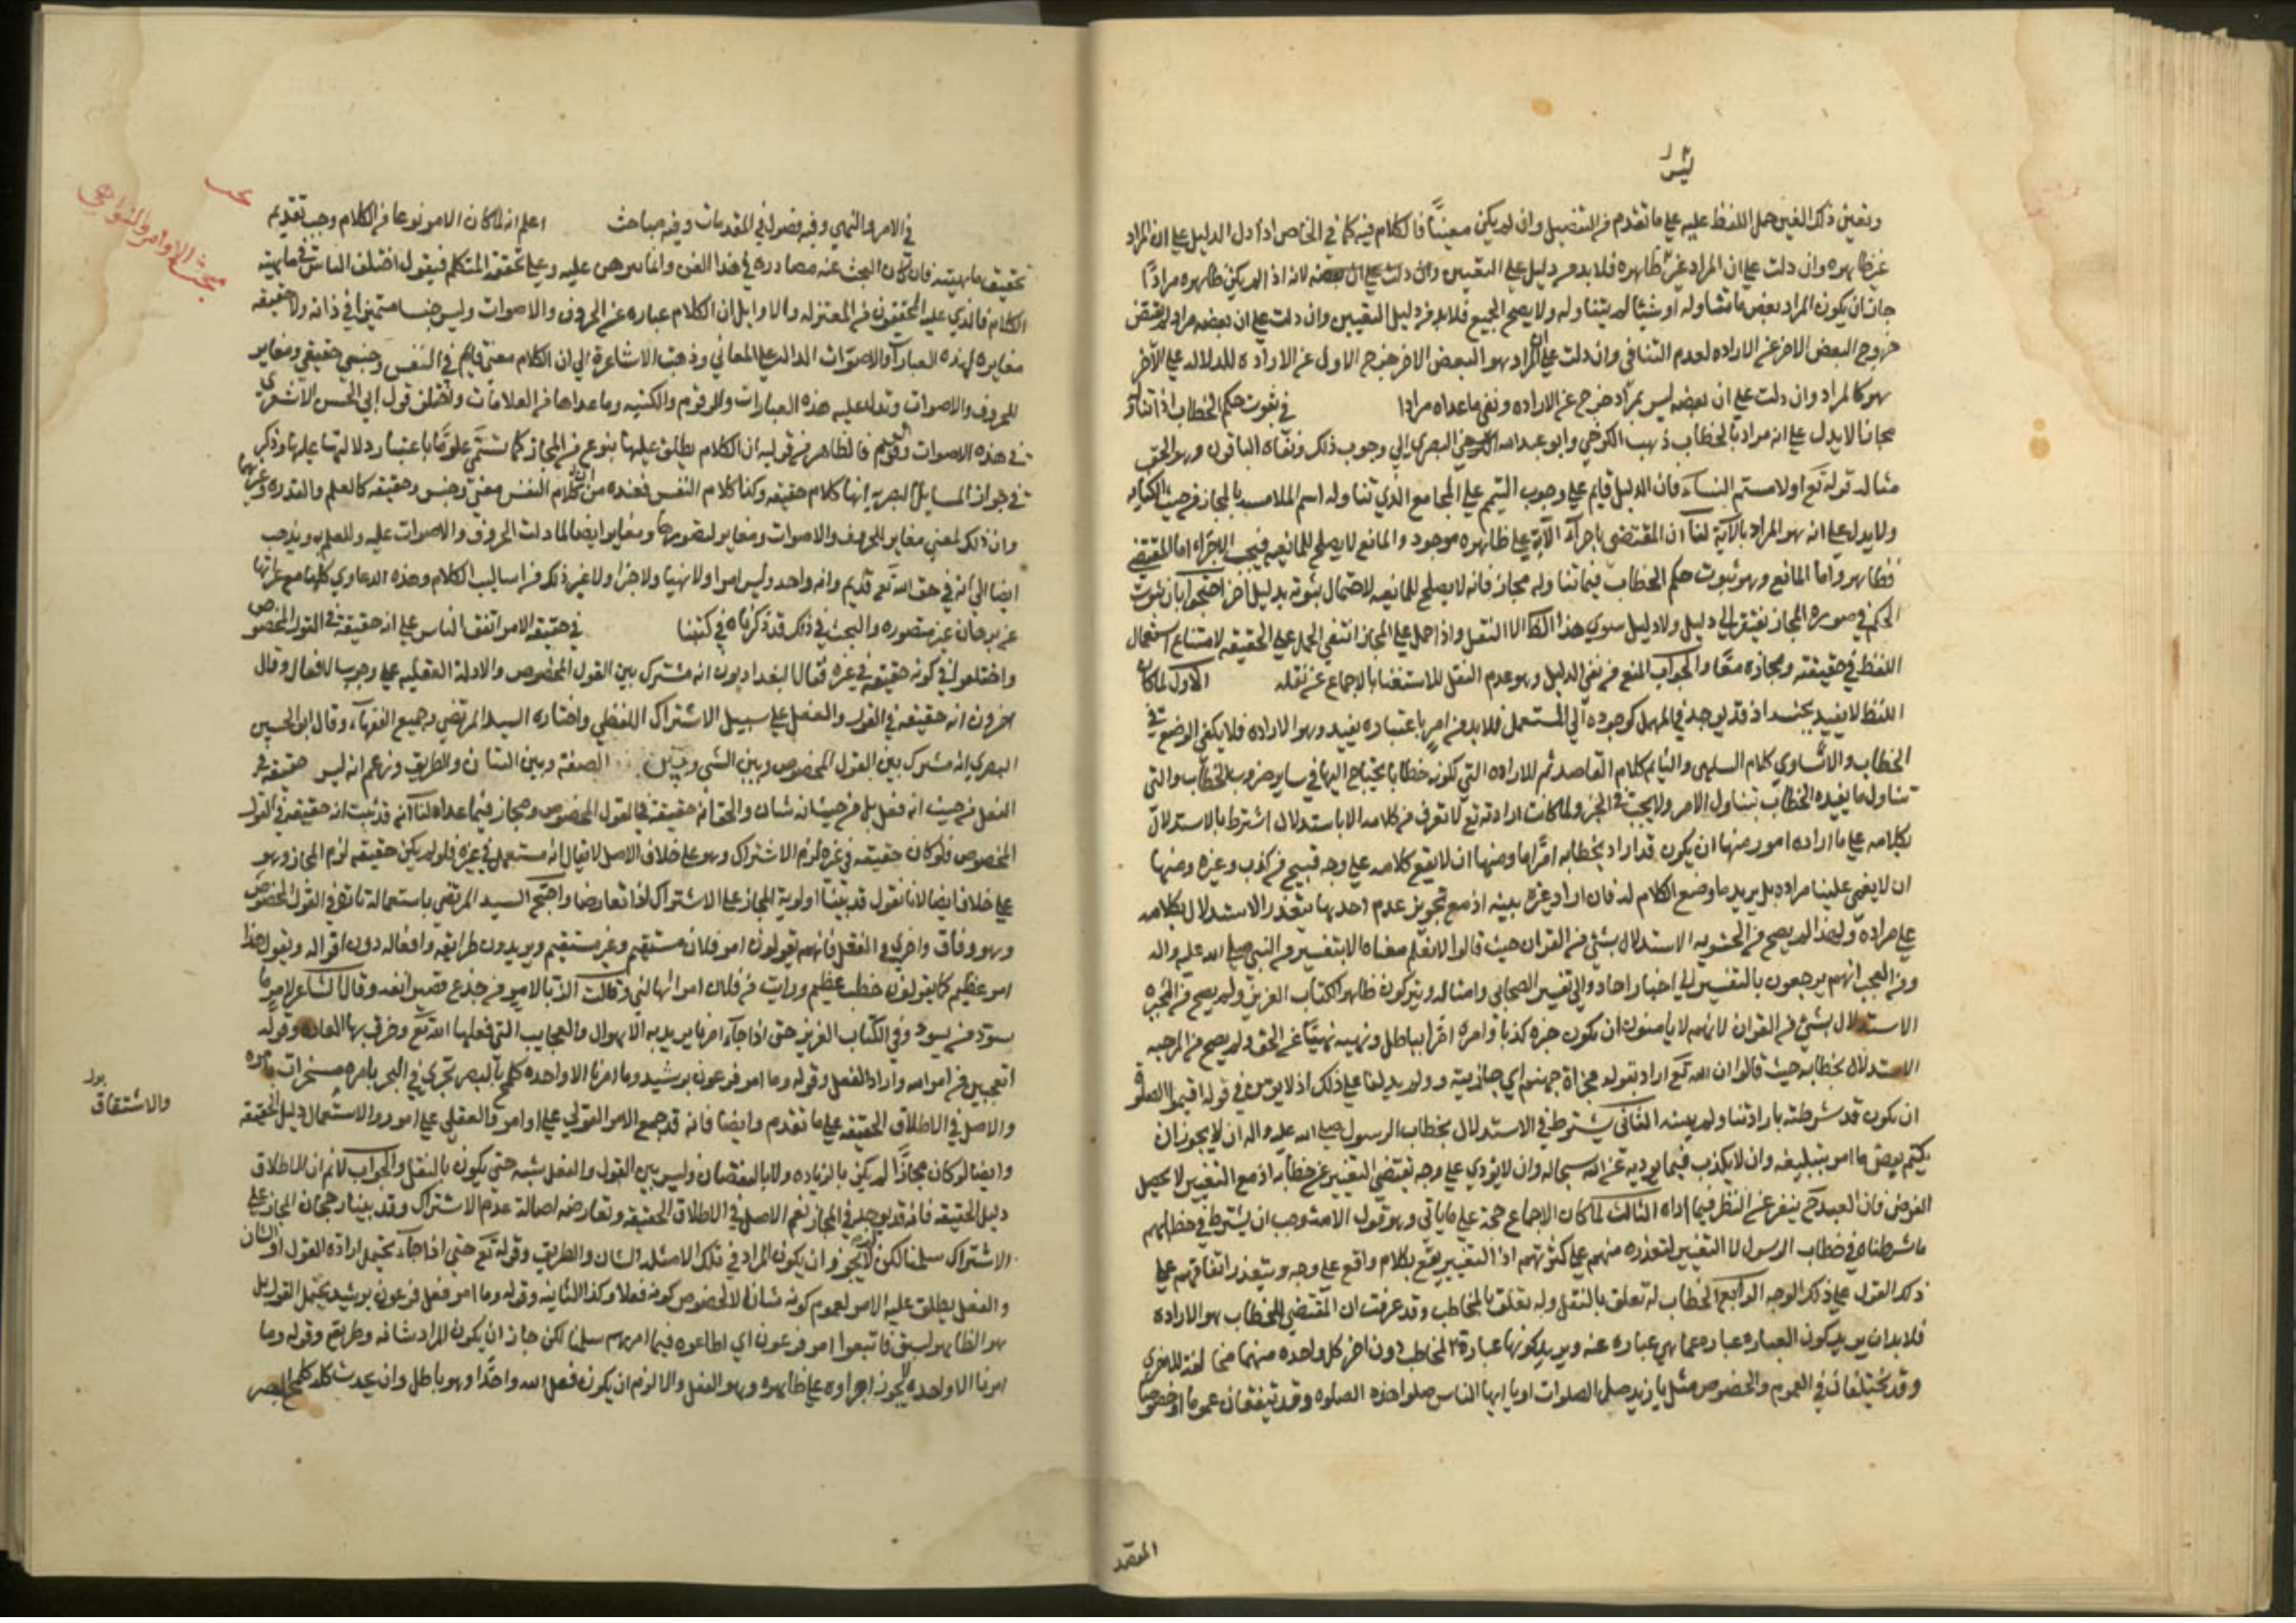 وتعين ذلك الغير حمل اللفظ عليه على ما تقدم من التفصيل وان لم يكن معينا فالكلام فيه كما في الخاص اذا دل الدليل على ان المراد
غير ظاهره وان دلت على ان المراد غير ظاهره فلا بد من دليل على التعيين وان دلت على ان بعضه لانه اذا لم يكن ظاهره مرادا
جاز ان يكون المراد بعض ما تناوله او شيئا لم يتناوله ولا يصح الجميع فلا بد من دليل التعيين وان دلت على ان بعضه مراد لم يقتض
خروج البعض الاخر عن الاراده لعدم التنافي وان دلت على ان المراد هو البعض الاخر خرج الاول عن الاراده للدلاله على الاخر
هو كالمراد وان دلت على ان بعضه ليس بمراد خرج عن الاراده وبقي ما عداه مرادا في ثبوت حكم الخطاب اذا تناول
مجازا لا يدل على انه مراد بالخطاب ذهب الكرخي وابو عبد الله البصري الى وجوب ذلك ونفاه الباقون وهو الحق
مثاله قوله تع او لامستم النساء فان الدليل قايم على وجوب التيمم على المجامع الذي تناوله اسم الملامسه بالمجاز من حيث الكنايه
ولا يدل على انه هو المراد بالآية لنا ان المقتضي باجراء الآية على ظاهره موجود والمانع لا يصلح للمانعيه فيجب الاجراء اما المقتضي
فظاهر واما المانع وهو ثبوت حكم الخطاب فيما تناوله مجاز فانه لا يصلح للمانعيه لاحتمال ثبوته بدليل آخر احتجوا بان ثبوت
الحكم في صوره المجاز يفتقر الى دليل ولا دليل سوى هذا الظاهر والا لنقل واذا حمل على المجاز انتفى الحمل على الحقيقه لامتناع استعمال
اللفظ في حقيقته ومجازه معا والجواب المنع من نفي الدليل وهو عدم النقل للاستغناء بالاجماع عن نقله الاول لما كان
اللفظ لا يفيد بجنسه اذ قد يوجد في المهمل كوجوده في المستعمل فلا بد من امر باعتباره يفيد وهو الاراده فلا يكفي الوضع في
الخطاب والا تساوى كلام الساهي والنايم كلام القاصد ثم الاراده التي تكونه خطابا يحتاج اليها في ساير ضروب الخطاب والتي
تتناول ما يفيده الخطاب تتناول الامر ولا يجب في الخبر ولما كانت ارادته تع لا تعرف من كلامه الا باستدلال اشترط بالاستدلال
بكلامه على ما اراده امور منها ان يكون قد اراد بخطابه امرا ما ومنها ان لا يقع كلامه على وجه قبيح من كذب وغيره ومنها
ان لا يعمي علينا مراده بل يريد ما وضع الكلام له فان اراد غيره بينه اذ مع تجويز عدم احدها يتعذر الاستدلال بكلامه
على مراده ولهذا لم يصح من الحشويه الاستدلال بشئ من القران حيث قالوا لا نعلم معناه الا بتفسير من النبي صلى الله عليه واله
ومن العجب انهم يرجعون بالتفسير الى اخبار احاد والى تفسير الصحابي وامثاله ويتركون ظاهر الكتاب العزيز ولم يصح من المجبره
الاستدلال بشئ من القران لانهم لا يامنون ان يكون خبره كذبا وامره امرا بباطل ونهيه نهيا عن الحق ولم يصح من المرجيه
الاستدلال بخطابه حيث قالوا ان الله تع اراد بقوله فجزاؤه جهنم اي جازيته ولم يدلنا على ذلك اذ لا يؤمن في قوله اقيموا الصلوة
ان يكون قد شرطته بارادتنا ولم يبينه الثاني يشترط في الاستدلال بخطاب الرسول صلى الله عليه واله ان لا يجوز ان
يكتم بعض ما امر بتبليغه وان لا يكذب فيما يوديه عن الله سبحانه وان لا يؤدي على وجه يقتضي التنفير عن خطابه اذ مع التنفير لا يحصل
الغرض فان العبد ح ينفر عن النظر فيما اداه الثالث لما كان الاجماع حجة على ما ياتي وهو قول الامة وجب ان يشترط في خطابهم
ما شرطناه في خطاب الرسول الا التنفير لتعذره منهم على كثرتهم اذ التنفير يقع بكلام واقع على وجه ويتعذر اتفاقهم على
ذلك القول على ذلك الوجه الرابع الخطاب له تعلق بالنقل وله تعلق بالمخاطب وقد عرفت ان المقتضي للخطاب هو الاراده
فلا بد ان يريد كون العباره عباره عما هي عباره عنه ويريد كونها عبارة لمخاطب دون اخر كل واحده منهما مخالفة للاخرى
وقد يختلفان في العموم والخصوص مثل يا زيد صل الصلوات او يا ايها الناس صلوا هذه الصلوه وقد يتفقان عموما او خصوصا
المقصد
بحث الاوامر والنواهي
في الامر والنهي وفيه فصول في المقدمات وفيه مباحث اعلم انه لما كان الامر نوعا من الكلام وجب تقديم
تحقيق ماهيته فان كان البحث عنه مصادره في هذا الفن وانما برهن عليه وعلى تحققه المتكلم فيقول اختلف الناس في ماهيته
الكلام فالذي عليه المحققون من المعتزله والاوايل ان الكلام عباره عن الحروف والاصوات وليس جنسا متميزا في ذاته ولا حقيقه
مغايره لهذه العبارات والاصوات الداله على المعاني وذهب الاشاعرة الى ان الكلام معنى قايم في النفس وجنس حقيقي ومغاير
للحروف والاصوات وتدل عليه هذه العبارات والرقوم والكتبه وما عداها من العلامات واختلف قول ابي الحسن الاشعري
في هذه الاصوات فالظاهر من قوليه ان الكلام يطلق عليها بنوع من المجاز كما تسمى علوما باعتبار دلالتها عليها وذكر
في جواب المسايل البصريه انها كلام حقيقه وكذا كلام النفس فعنده من كلام النفس معنى وجنس وحقيقه كالعلم والقدره وغيرها
وان ذلك المعنى مغاير للحروف والاصوات ومغاير لتصورها ومغاير ايضا لما دلت الحروف والاصوات عليه وللعلم به ويذهب
ايضا الى انه في حق الله تع قديم وانه واحد وليس امرا ولا نهيا ولا خبرا ولا غير ذلك من اساليب الكلام وهذه الدعاوي كلها مع عرائها
عن برهان غير متصوره والبحث في ذلك قد ذكرناه في كتبنا في حقيقه الامر اتفق الناس على انه حقيقه في القول المخصوص
واختلفوا في كونه حقيقه في غيره فقال البغداديون انه مشترك بين القول المخصوص والادلة العقليه على وجوب الافعال وقال
اخرون انه حقيقه في القول والفعل على سبيل الاشتراك اللفظي واختاره السيد المرتضى وجميع الفقهاء وقال ابو الحسين
البصري انه مشترك بين القول المخصوص وبين الشئ وبين الصفة وبين الشان والطريق وزعم انه ليس حقيقه في
الفعل من حيث انه فعل بل من حيث انه شان والحق انه حقيقه في القول المخصوص ومجاز فيما عداه لنا انه قد ثبت انه حقيقه في القول
المخصوص فلو كان حقيقه في غيره لزم الاشتراك وهو على خلاف الاصل لا يقال انه مستعمل في غيره فلو لم يكن حقيقه لزم المجاز وهو
على خلاف ايضا لانا نقول قد بينا اولوية المجاز على الاشتراك اذا تعارضا واحتج السيد المرتضى باستعماله تارة في القول المخصوص
وهو وفاق واخرى في الفعل فانهم يقولون امر فلان مستقيم وغير مستقيم ويريدون طرايقه وافعاله دون اقواله ويقول هذا
امر عظيم كما يقولون خطب عظيم ورايت من فلان امرا هالني وقالت الزبا لامر ما جدع قصير انفه وقال الشاعر لامر ما
يسود من يسود وفي الكتاب العزيز حتى اذا جاء امرنا يريد به الاهوال والعجايب التي فعلها الله تع وخرق بها العاده وقوله
اتعجبين من امر الله واراد الفعل وقوله وما امر فرعون برشيد وما امرنا الا واحده كلمح بالبصر تجري في البحر بامره مسخرات بامره
والاصل في الاطلاق الحقيقه على ما تقدم وايضا فانه قد جمع الامر القولي على اوامر والفعلي على امور والاستعمال دليل الحقيقه
والاشتقاق
وايضا لو كان مجازا لم يكن بالزياده ولا بالنقصان وليس بين القول والفعل شبه حتى يكون بالنقل والجواب لا نم ان الاطلاق
دليل الحقيقه فانه قد يوجد في المجاز نعم الاصل في الاطلاق الحقيقه وتعارضه اصالة عدم الاشتراك وقد بينا رجحان المجاز على
الاشتراك سلمنا لكن لم لا يجوز ان يكون المراد في تلك الامثله الشان والطريق وقوله تع حتى اذا جاء يحتمل اراده القول او الشان
والفعل يطلق عليه الامر لعموم كونه شانا لا لخصوص كونه فعلا وكذا الثانيه وقوله وما امر فعل فرعون برشيد يحتمل القول بل
هو الظاهر لسبق فاتبعوا امر فرعون اي اطاعوه فيما امرهم سلمنا لكن جاز ان يكون المراد شانه وطريقه وقوله وما
امرنا الا واحده لا يجوز اجراوه على ظاهره وهو الفعل والا لزم ان يكون فعل الله واحدا وهو باطل وان يحدث كله كلمح البصر